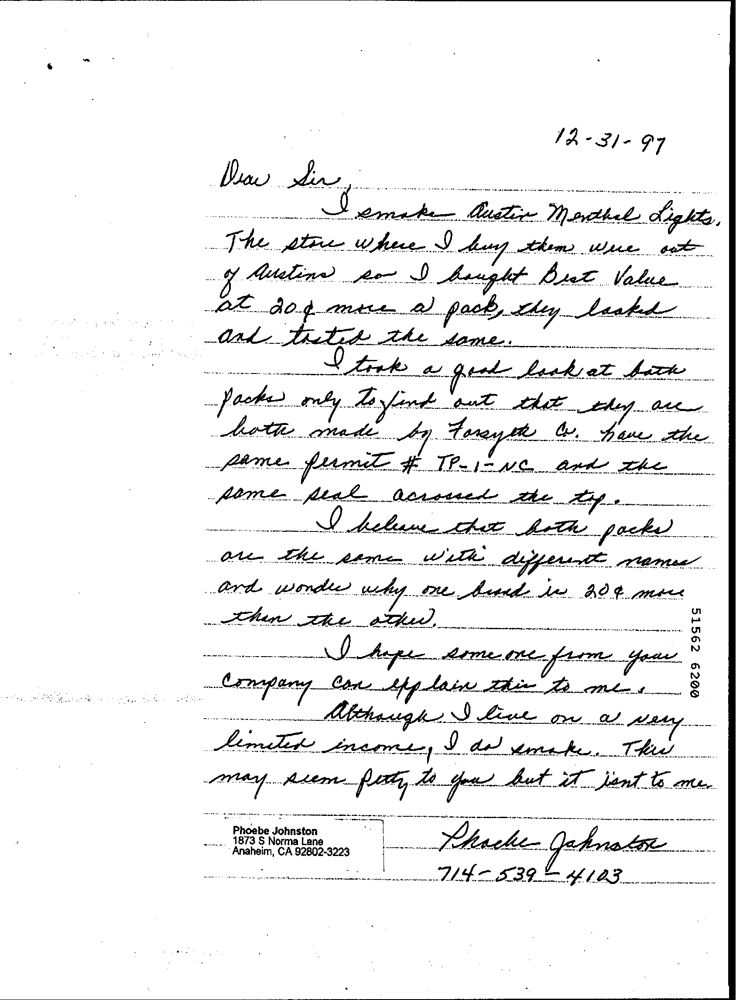 12-31-97
Dear Sir,
I smoke Austin Menthal Lights.
The store where I buy them were out
of Austins so I bought Best Value
at 20¢ more a pack, they looked
and tasted the same.
I took a good look at both
packs only to find out that they are
both made by Forsyth Co. have the
same permit # TP-1-NC and the
same seal acrossed the top.
I beleave that both packs
are the same with different names
and wonder why one brand is 20¢ more
than the other.
I hope someone from your
company can explain this to me.
Although I live on a very
limited income, I do smoke. This
may seem petty to you but it isnt to me.
Phoebe Johnston
1873 S Norma Lane
Anaheim, CA 92802-3223
Phoebe Johnston
714-539-4103
51562 6200